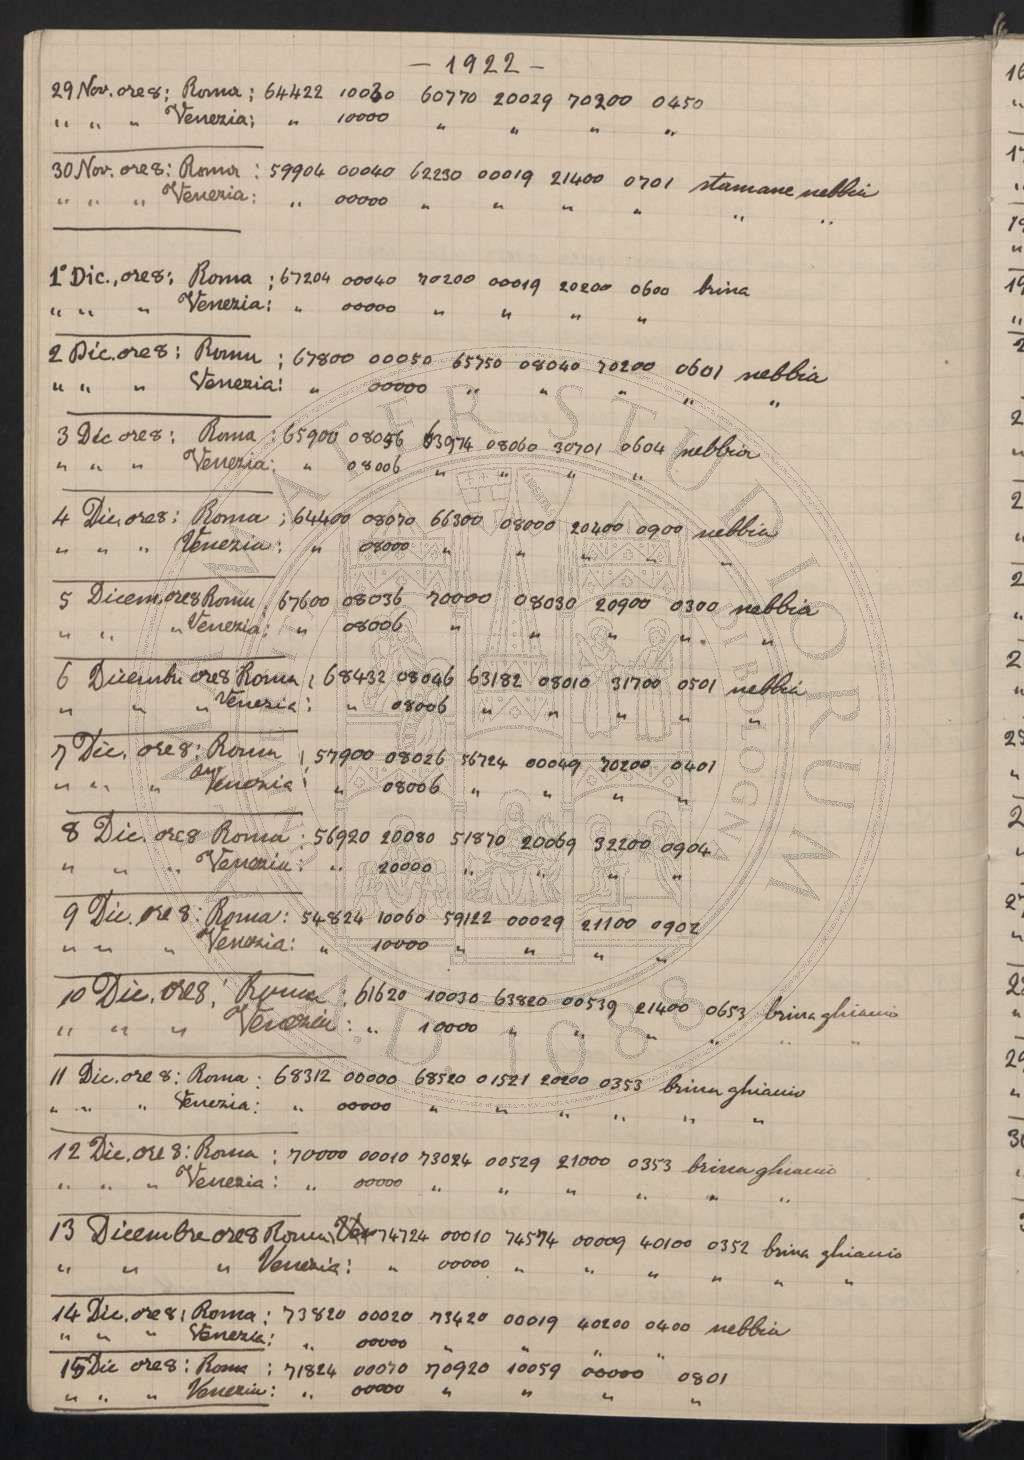 - 1922 -
29 Nov. ore 8: Roma: 64422 10030 60770 20029 70200 0450
" " " Venezia: " 10000 " " " "
30 Nov. ore 8: Roma: 59904 00040 62230 00019 21400 0701 stamane nebbia
" " " Venezia: " 00000 " " " " " "
1° Dic., ore 8: Roma: 67204 00040 70200 00019 20200 0600 brina
" " " Venezia: " 00000 " " " "
2 Dic. ore 8: Roma: 67800 00050 65750 08040 70200 0601 nebbia
" " " Venezia: " 00000 " " " " "
3 Dic ore 8: Roma: 65900 08056 63974 08060 30701 0604 nebbia
" " " Venezia: " 08006 " " " "
4 Dic. ore 8: Roma: 64400 08070 66300 08000 20400 0900 nebbia
" " " Venezia: " 08000 " " " " "
5 Dicem. ore 8 Roma: 67600 08036 70000 08030 20900 0300 nebbia
" " " Venezia: " 08006 " " " " "
6 Dicembre ore 8 Roma: 68432 08046 63182 08010 31700 0501 nebbia
" " " Venezia: " 08006 " " " " "
7 Dic. ore 8: Roma: 57900 08026 56724 00049 70200 0401
" " " Venezia: " 08006 " " " "
8 Dic. ore 8 Roma: 56920 20080 51870 20069 32200 0904
" " " Venezia: " 20000 " " " "
9 Dic. ore 8: Roma: 54824 10060 59122 00029 21100 0902
" " " Venezia: " 10000 " " " "
10 Dic. ore 8: Roma: 61620 10030 63820 00539 21400 0653 brina ghiaccio
" " " Venezia: " 10000 " " " " " "
11 Dic. ore 8: Roma: 68312 00000 68520 01521 20200 0353 brina ghiaccio
" " " Venezia: " 00000 " " " " " "
12 Dic. ore 8: Roma: 70000 00010 73024 00529 21000 0353 brina ghiaccio
" " " Venezia: " 00000 " " " " " "
13 Dicembre ore 8 Roma, 74724 00010 74574 00009 40100 0352 brina ghiaccio
" " " Venezia: " 00000 " " " " " "
14 Dic. ore 8: Roma: 73820 00020 73420 00019 40200 0400 nebbia
" " " Venezia: " 00000 " " " "
15 Dic ore 8: Roma: 71824 00070 70920 10059 00000 0801
" " " Venezia: " 00000 " " " "
ALMA MATER STUDIORUM
A.D. 1088